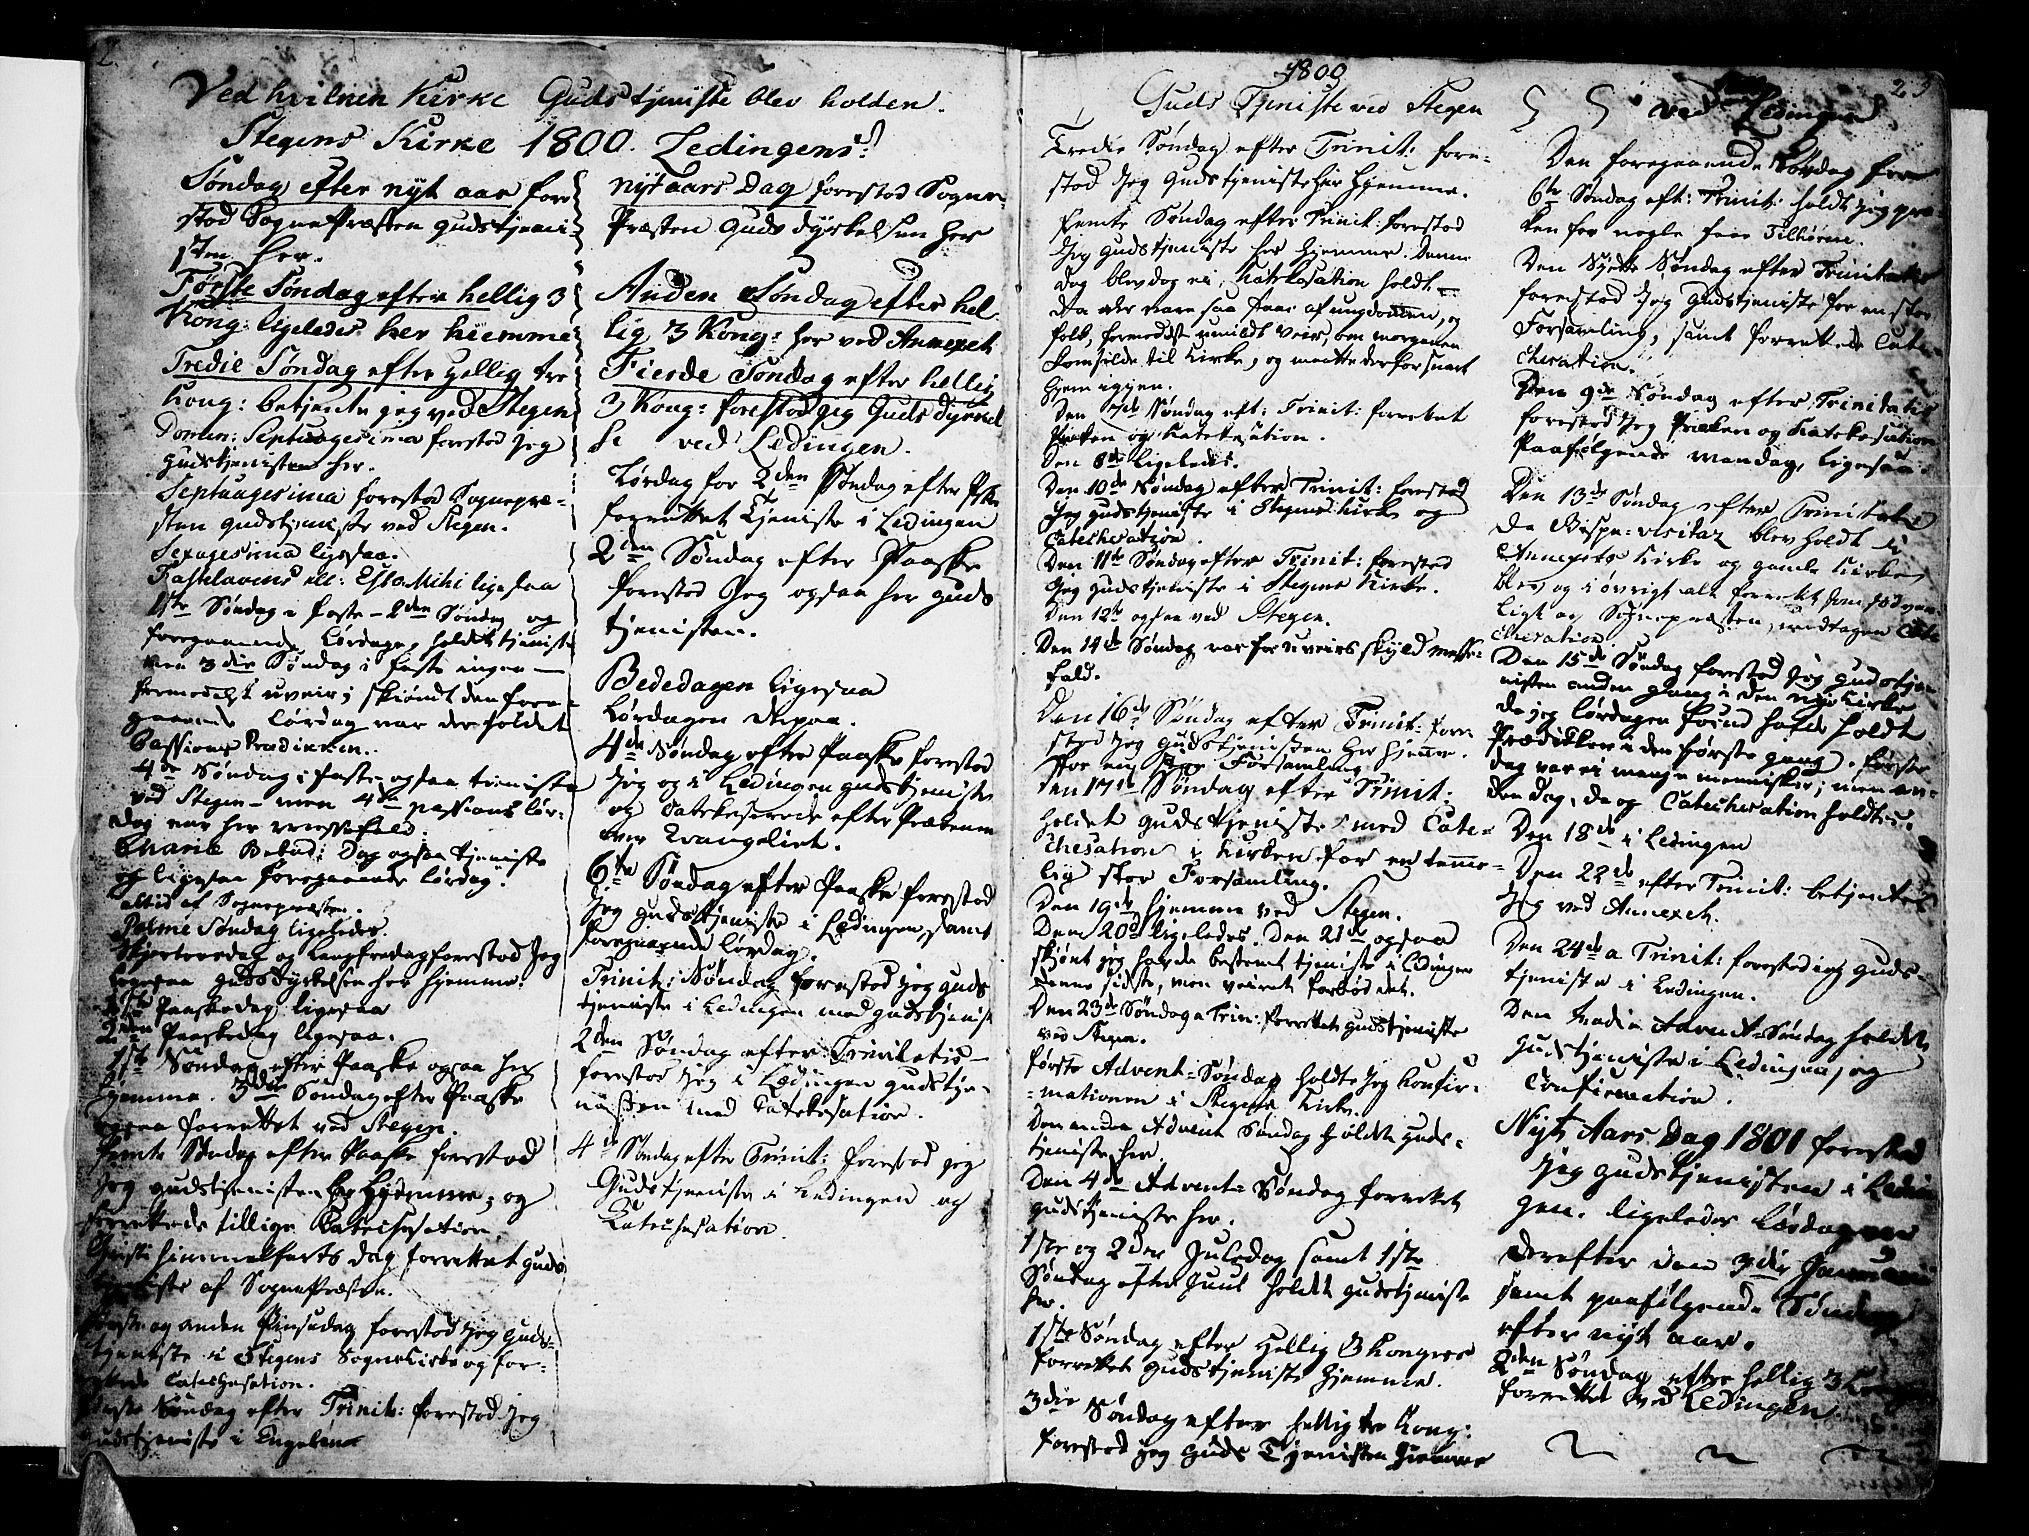 2.
Ved hvilken Kirke Guds tjeniste blev holden.
Stegens Kirke 1800. Ledingens:
Søndag efter nyt aar fore
stod Sogne Præsten gudstjeni-
sten her.
Første Søndag efter hellig 3
Kong: ligeledes her hiemme
Tredie Søndag efter Hellig tre
Kong: betjente jeg ved Stegen
Domin: Septuagesima forestod Jeg
gudstjenisten her.
Septuagesima forestod Sognepræ-
sten gudstjeniste ved Stegen.
Sexagesima ligesaa.
Fastelavens ell: Esto Mihi ligesaa
1ste Søndag i faste - 2den Søndag og
foregaaende Lørdage, holdet tjeniste
men 3die Søndag i faste ingen -
formedelst uveir, skiøndt den fore-
gaaende Lørdag var der holdet
Passions Prædicken.
4de Søndag i faste ogsaa tjeniste
ved Stegen - men 4de passions lør-
dag var her messefald.
Mariæ Bebud: Dag ogsaa tjeniste
og ligesaa foregaaende lørdag.
altid af Sognepræsten.
Palme Søndag ligeledes.
Skjertorsdag og Langfredag forestod Jeg
ligesaa gudsdyrkelsen her hjemme.
1ste Paaskedag ligesaa
2den Paaskedag ligesaa.
1ste Søndag efter Paaske ogsaa her
hjemme. 3die Søndag efter Paaske
ogsaa forrettet ved Stegen.
femte Søndag efter Paaske forestod
Jeg gudstjenisten her hjemme, og
forrettede tillige Catechesation.
Christi himmelfarts dag forrettet guds
tjeniste af SognePræsten.
første og anden Pinsedag forestod Jeg guds-
tjeniste i Stegens SogneKirke og for-
rettede Catechesation.
første Søndag efter Trinit: forestod Jeg
gudstjeniste i
nyt aars Dag forestod Sogne-
Præsten Guds dyrkelsen her
Anden Søndag efter hel
lig 3 Kong: her ved Annexet
Fierde Søndag efter hellig
3 Kong: forestod jeg Guds dyrkel
se ved Ledingen.
Lørdag for 2den Søndag efter Paaske
forrettet Tjeniste i Ledingen
2den Søndag efter Paaske
forestod Jeg ogsaa her guds
tjenisten.
Bededagen ligesaa
Lørdagen
4de Søndag efter Paaske forestod
Jeg og i Ledingen gudstjeniste
og Catekeserede efter Prækenen
over Evangeliet.
6te Søndag efter Paaske forestod
Jeg gudstjeniste i Ledingen, samt
foregaaende lørdag.
Trinit: Søndag forestod Jeg guds
tjeniste i Ledingen med gudstjenist
2den Søndag efter Trinitatis
forestod Jeg i Ledingen gudstje-
nisten med Catekesation.
4de Søndag efter Trinit: forestod jeg
Gudstjeniste i Ledingen og
Catechesation.
1800
Guds Tjeniste ved Stegen
Tredie Søndag efter Trinit: fore-
stod Jeg Gudstjeniste her hjemme.
Femte Søndag efter Trinit: forestod
Jeg gudstjeniste her hjemme. Denne
dag blev dog ei Catekesation holdt
da der vare saa faae af ungdommen, og
folk, formedelst umildt veir, om morgenen
kom silde til Kirke, og maatte derfor snart
hjem igien.
Den 7de Søndag eft: Trinit: forrettet
Præken og Catekesation.
Den 8de ligeledes.
Den 10de Søndag efter Trinit: forestod
Jeg gudstjeniste i Stegens Kirke og
Catechesation.
Den 11te Søndag efter Trinit: forestod
Jeg gudstjeniste i Stegens Kirke.
Den 12te ogsaa ved Stegen.
Den 14de Søndag var for uveirs skyld messe-
fald.
Den 16de Søndag efter Trinit: fore
stod Jeg gudstjenisten her hjemme.
for en Forsamling.
Den 17de Søndag efter Trinit:
holdet gudstjeniste med Cate-
chesation i Kirken for en temme-
lig stor Forsamling.
Den 19de hjemme ved Stegen.
Den 20de ligeledes. Den 21de ogsaa
skjønt jeg havde bestemt tjeniste i Ledingen
denne sidste, men veiret forbød det.
Den 23de Søndag a Trin: forrettet gudstjeniste
ved Stegen.
første Advent-Søndag holdte Jeg Confir-
-mationen i Stegens Kirke.
Den anden Advent Søndag holdte guds-
tjeniste her.
Den 4de Advent-Søndag forrettet
gudstjeniste her.
1ste og 2den Juledag samt 1ste
Søndag efter Juul holdt gudstjeniste
her.
1ste Søndag efter Hellig 3 Konger
forrettet gudstjeniste hjemme.
3die Søndag efter hellig tre Kong:
forestod jeg Guds Tjenisten hjemme
23
ved Ledingen
Den foregaaende Lørdag for
6te Søndag eft: Trinit: holdt Jeg præ-
ken for nogle faae Tilhørere.
Den Siette Søndag efter Trinitatis
forestod Jeg Gudstjeniste for en stor
Forsamling, samt forrettede Cate-
chesation.
Den 9de Søndag efter Trinitatis
forestod Jeg Præken og Katekesation
Paafølgende Mandag, ligesaa.
Den 13de Søndag efter Trinitatis
da Bispe-visitaz blev holdt i
Annexets Kirke og gamle Kirke
blev og i øvrigt alt forrettet som sædvan-
ligt av Sognepræsten, undtagen Cate
chesation
Den 15de Søndag forestod Jeg gudstje-
nisten anden gang i den nye Kirke
da jeg lørdagen forud hafde holdt
Prædikken i den første gang. første
dag var ei mange mennisker; men an-
den dag, da og Catechesation holdtes.
Den 18de i Ledingen
Den 22de efter Trinit: betjentes
Jeg ved Annexet.
Den 24de a Trinit: forestod jeg guds-
tjeniste i Ledingen.
Den tredie Advent-Søndag holdet
gudstjeniste i Ledingen, og
Confirmation.
Nyt Aars Dag 1801 forestod
Jeg gudstjenisten i Ledin
gen. ligeledes Lørdagen
derefter den 3die Januarii
samt paafølgende Søndag
efter nyt aar.
2den Søndag efter hellig 3 Konger
forrettet ved Ledingen.